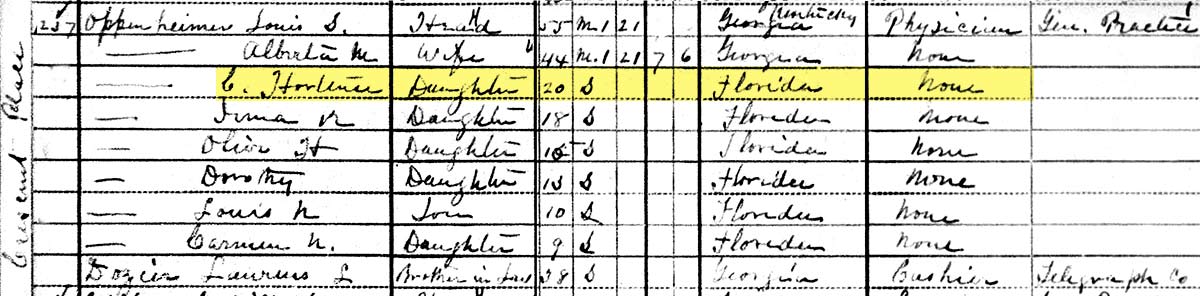 237 Oppenheimer Louis S. Head 55 M.1 21 Georgia Kentucky Physician Gen. Practice
Alberta M Wife 44 M.1 21 7 6 Georgia None
C. Hortense Daughter 20 S Florida None
Irma V Daughter 18 S Florida None
Olive H Daughter 15 S Florida None
Dorothy Daughter 13 S Florida None
Louis N Son 10 S Florida None
Carmen N. Daughter 9 S Florida None
Dozier Laurens L Brother in Law 38 S Georgia Cashier Telegraph Co
Crescent Place